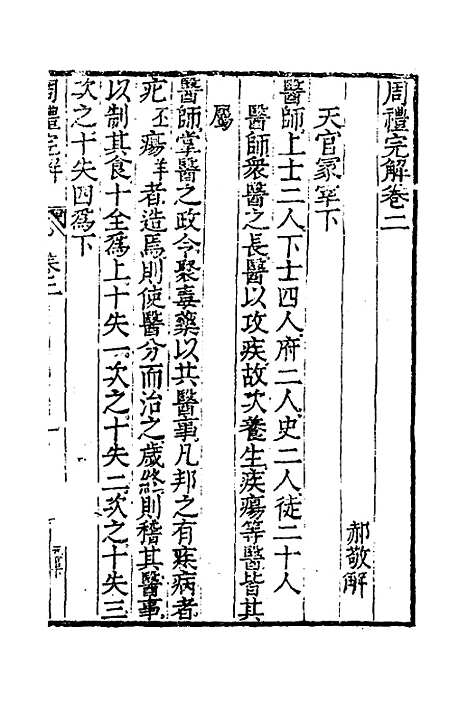 周禮完解卷二
郝敬解
天官冢宰下
醫師上士二人下士四人府二人史二人徒二十人
醫師衆醫之長醫以攻疾故次養生疾瘍等醫皆其
屬
醫師掌醫之政令聚毒藥以共醫事凡邦之有疾病者
疕丕瘍羊者造焉則使醫分而治之歲終則稽其醫事
以制其食十全爲上十失一次之十失二次之十失三
次之十失四爲下
周禮完解
卷二